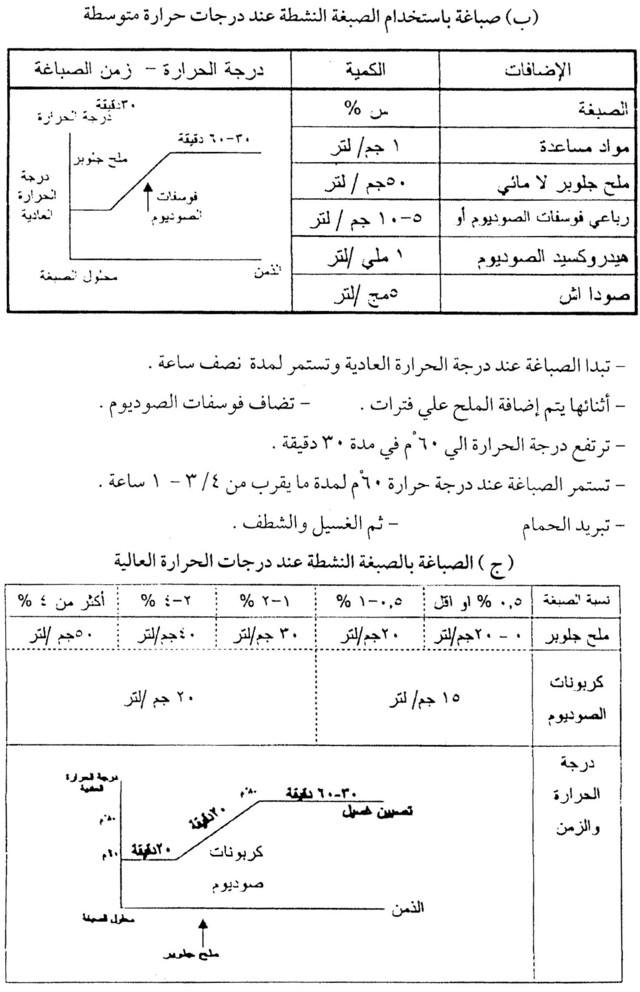 (ب) صباغة باستخدام الصبغة النشطة عند درجات حرارة متوسطة
الإضافات الكمية درجة الحرارة – زمن الصباغة
الصبغة س %
مواد مساعدة ١ جم/ لتر
ملح جلوبر لا مائي ٥٠جم / لتر
رباعي فوسفات الصوديوم أو ٥-١٠ جم / لتر
هيدروكسيد الصوديوم ١ ملي /لتر
صودا اش ٥مج /لتر
٣٠دقيقة
درجة الحرارة
٣٠-٦٠ دقيقة
ملح جلوبر
درجة
الحرارة
العادية
فوسفات
الصوديوم
الذمن
محلول الصبغة
– تبدا الصباغة عند درجة الحرارة العادية وتستمر لمدة نصف ساعة .
– أثنائها يتم إضافة الملح علي فترات . – تضاف فوسفات الصوديوم .
– ترتفع درجة الحرارة الي ٦٠°م في مدة ٣٠ دقيقة .
– تستمر الصباغة عند درجة حرارة ٦٠°م لمدة ما يقرب من ٣/٤ – ١ ساعة .
– تبريد الحمام – ثم الغسيل والشطف .
(ج) الصباغة بالصبغة النشطة عند درجات الحرارة العالية
نسبة الصبغة ٠,٥ % او اقل ٠,٥-١ % ١-٢ % ٢-٤ % أكثر من ٤ %
ملح جلوبر ٠ - ٢٠جم/لتر ٢٠جم/لتر ٣٠ جم/لتر ٤٠جم/لتر ٥٠جم/لتر
كربونات
الصوديوم
١٥ جم/ لتر ٢٠ جم /لتر
درجة
الحرارة
والزمن
درجة الحرارة
٨٠°م
٣٠-٦٠ دقيقة
تصبين غسيل
٨٠°م
٢٠دقيقة
٦٠°م
٢٠دقيقة
كربونات
صوديوم
الذمن
محلول الصبغة
ملح جلوبر